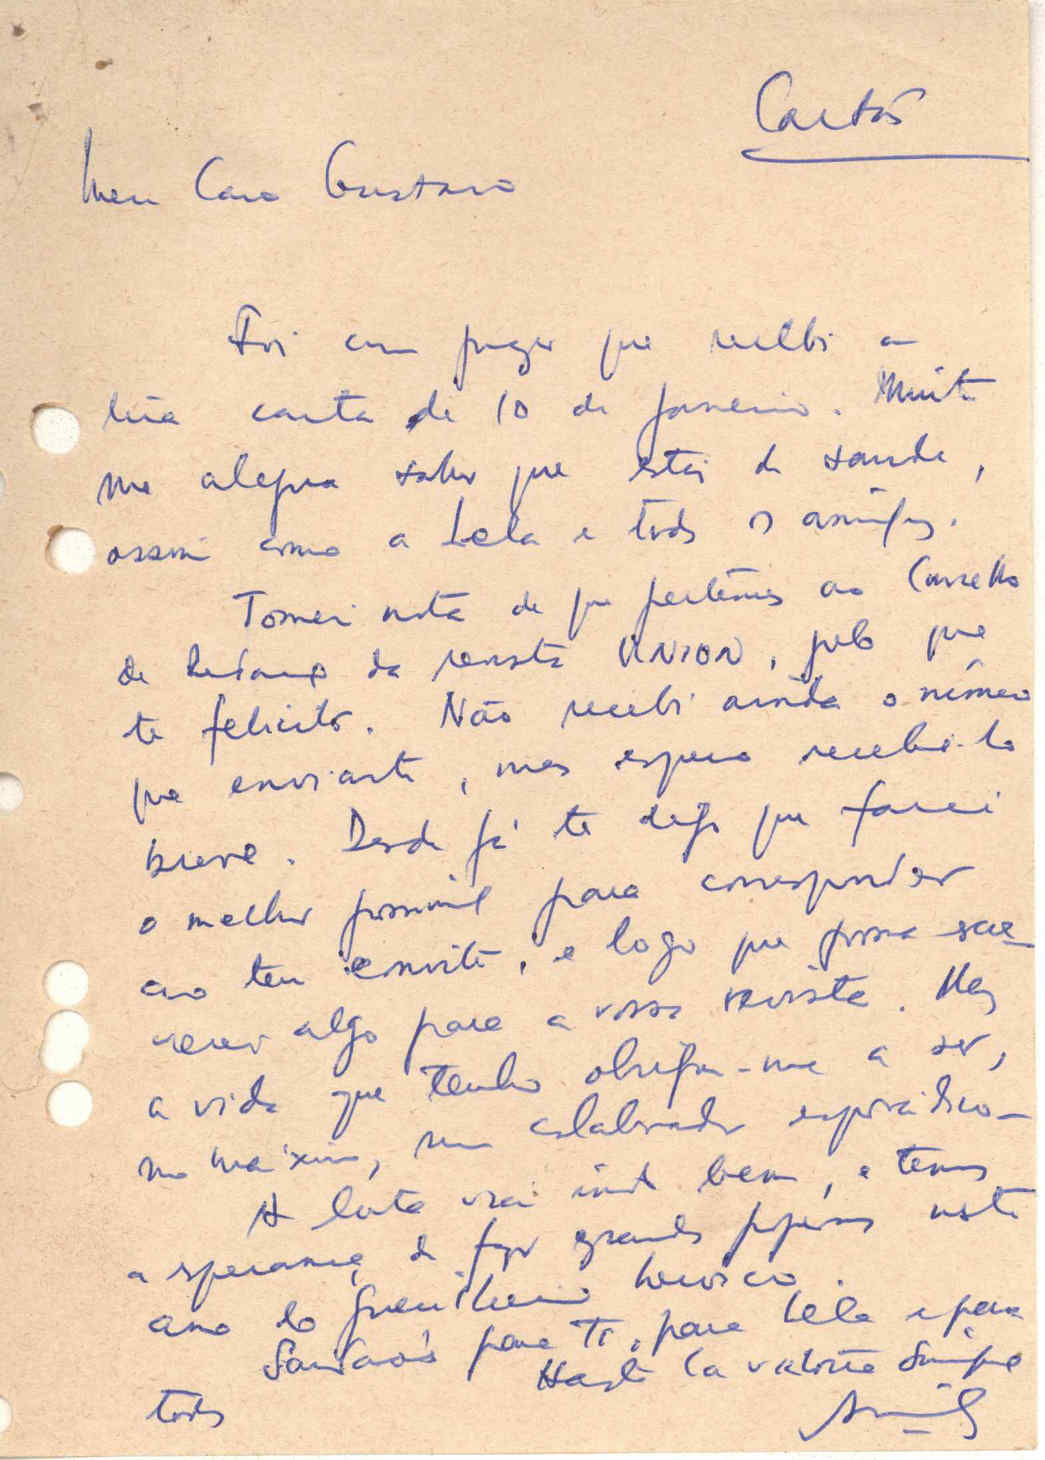 Cartão
Meu Caro Gustavo
Foi com prazer que recebi a
tua carta de 10 de Janeiro. Muito
me alegra saber que estás de saude,
assim como a Lela e todos os amigos.
Tomei nota de que pertences ao Conselho
de Redacção da revista UNION, pelo que
te felicito. Não recebi ainda o número
que enviaste, mas espero recebê-lo
breve. Desde já te digo que farei
o melhor possivel para corresponder
ao teu convite, e logo que possa scre-
verei algo para a vossa revista. Mas
a vida que tenho obriga-me a ser,
no máximo, um colaborador esporádico.
A luta vai indo bem, e temos
a esperança de fazer grandes progressos neste
ano do Guerrilheiro heroico.
Saudações para Ti, para Lela e para
todos
Hasta la victoria Siempre